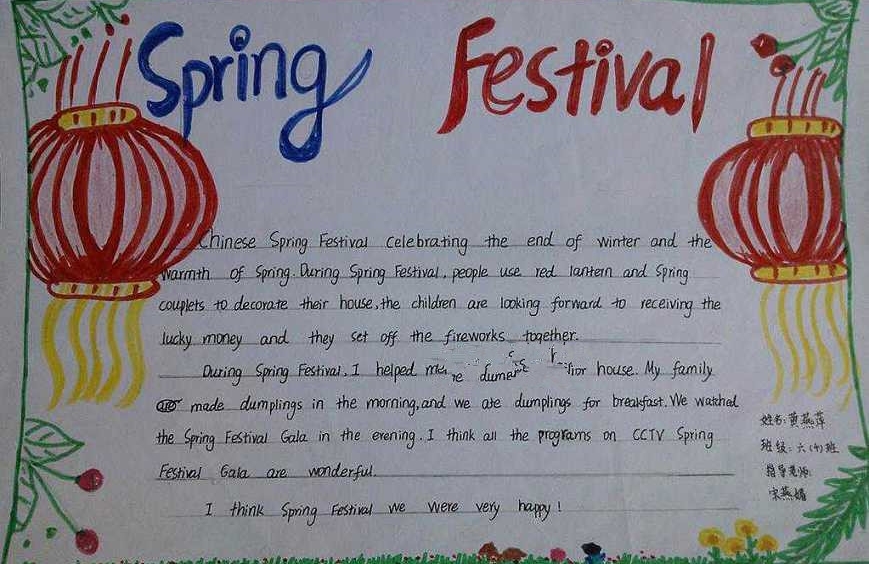 Spring Festival
Chinese Spring Festival celebrating the end of winter and the
warmth of Spring. During Spring Festival, people use red lantern and Spring
couplets to decorate their house, the children are looking forward to receiving the
lucky money and they set off the fireworks together.
During Spring Festival, I helped house. My family
made dumplings in the morning, and we ate dumplings for breakfast. We watched
the Spring Festival Gala in the evening. I think all the programs on CCTV Spring
Festival Gala are wonderful.
I think Spring Festival we were very happy!
姓名: 黄燕萍
班级: 六(4)班
指导老师:
宋燕娟